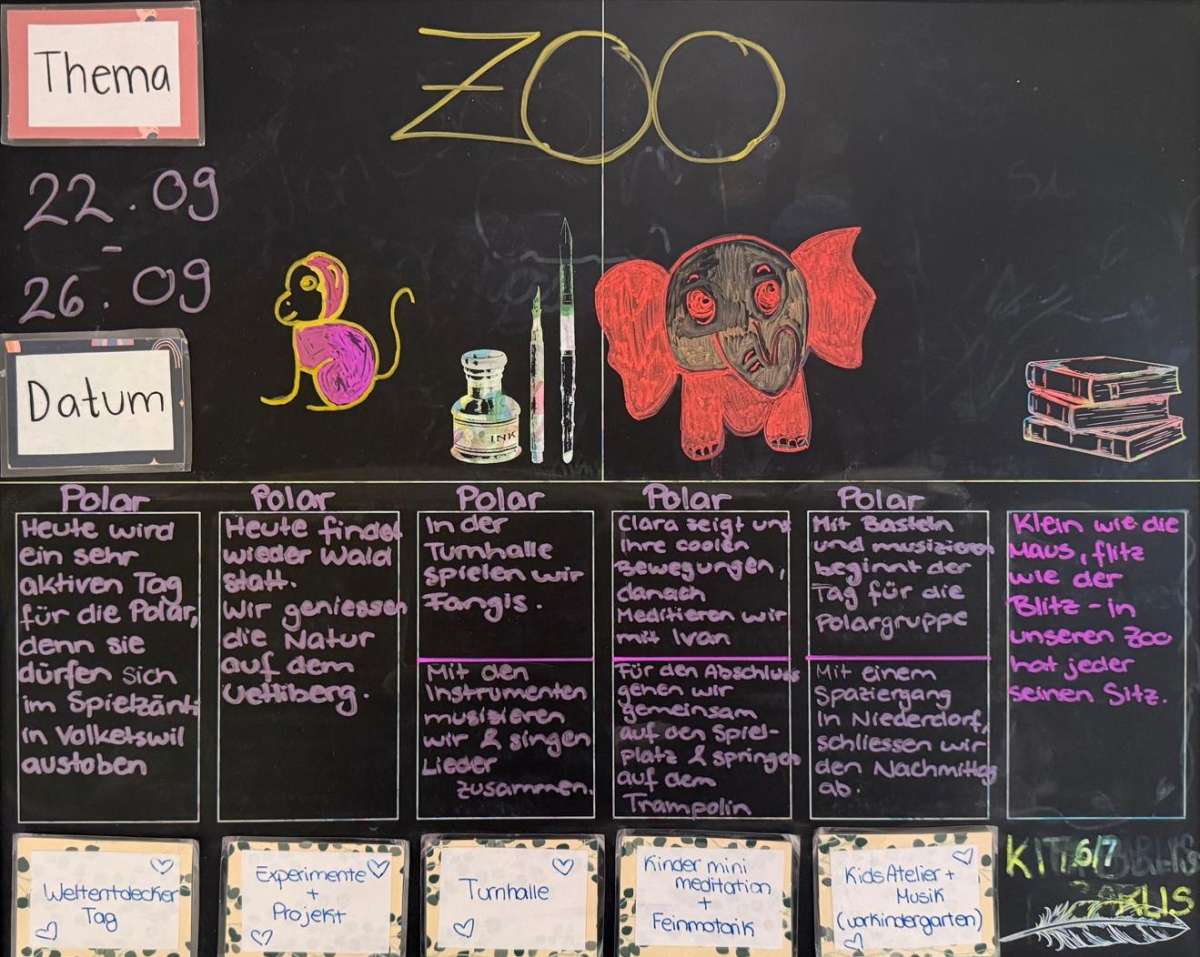 Thema
ZOO
22.09
-
26.09
Datum
INK
Polar
Heute wird
ein sehr
aktiven Tag
für die Polar,
denn sie
dürfen sich
im Spielzänti
in Volketswil
austoben
Weltentdecker
Tag
Polar
Heute findet
wieder Wald
statt.
Wir geniessen
die Natur
auf dem
Uetliberg.
Experimente
+
Projekt
Polar
In der
Turnhalle
spielen wir
Fangis.
Mit den
Instrumenten
musizieren
wir & singen
Lieder
zusammen.
Turnhalle
Polar
Clara zeigt uns
ihre coolen
Bewegungen,
danach
Meditieren wir
mit Ivan
Für den Abschluss
gehen wir
gemeinsam
auf den Spiel-
platz & springen
auf dem
Trampolin
Kinder mini
meditation
+
Feinmotorik
Polar
Mit Basteln
und musizieren
beginnt der
Tag für die
Polargruppe
Mit einem
Spaziergang
in Niederdorf,
schliessen wir
den Nachmittag
ab.
Kids Atelier +
Musik
(vorkindergarten)
Klein wie die
Maus, flitz
wie der
Blitz - in
unseren Zoo
hat jeder
seinen Sitz.